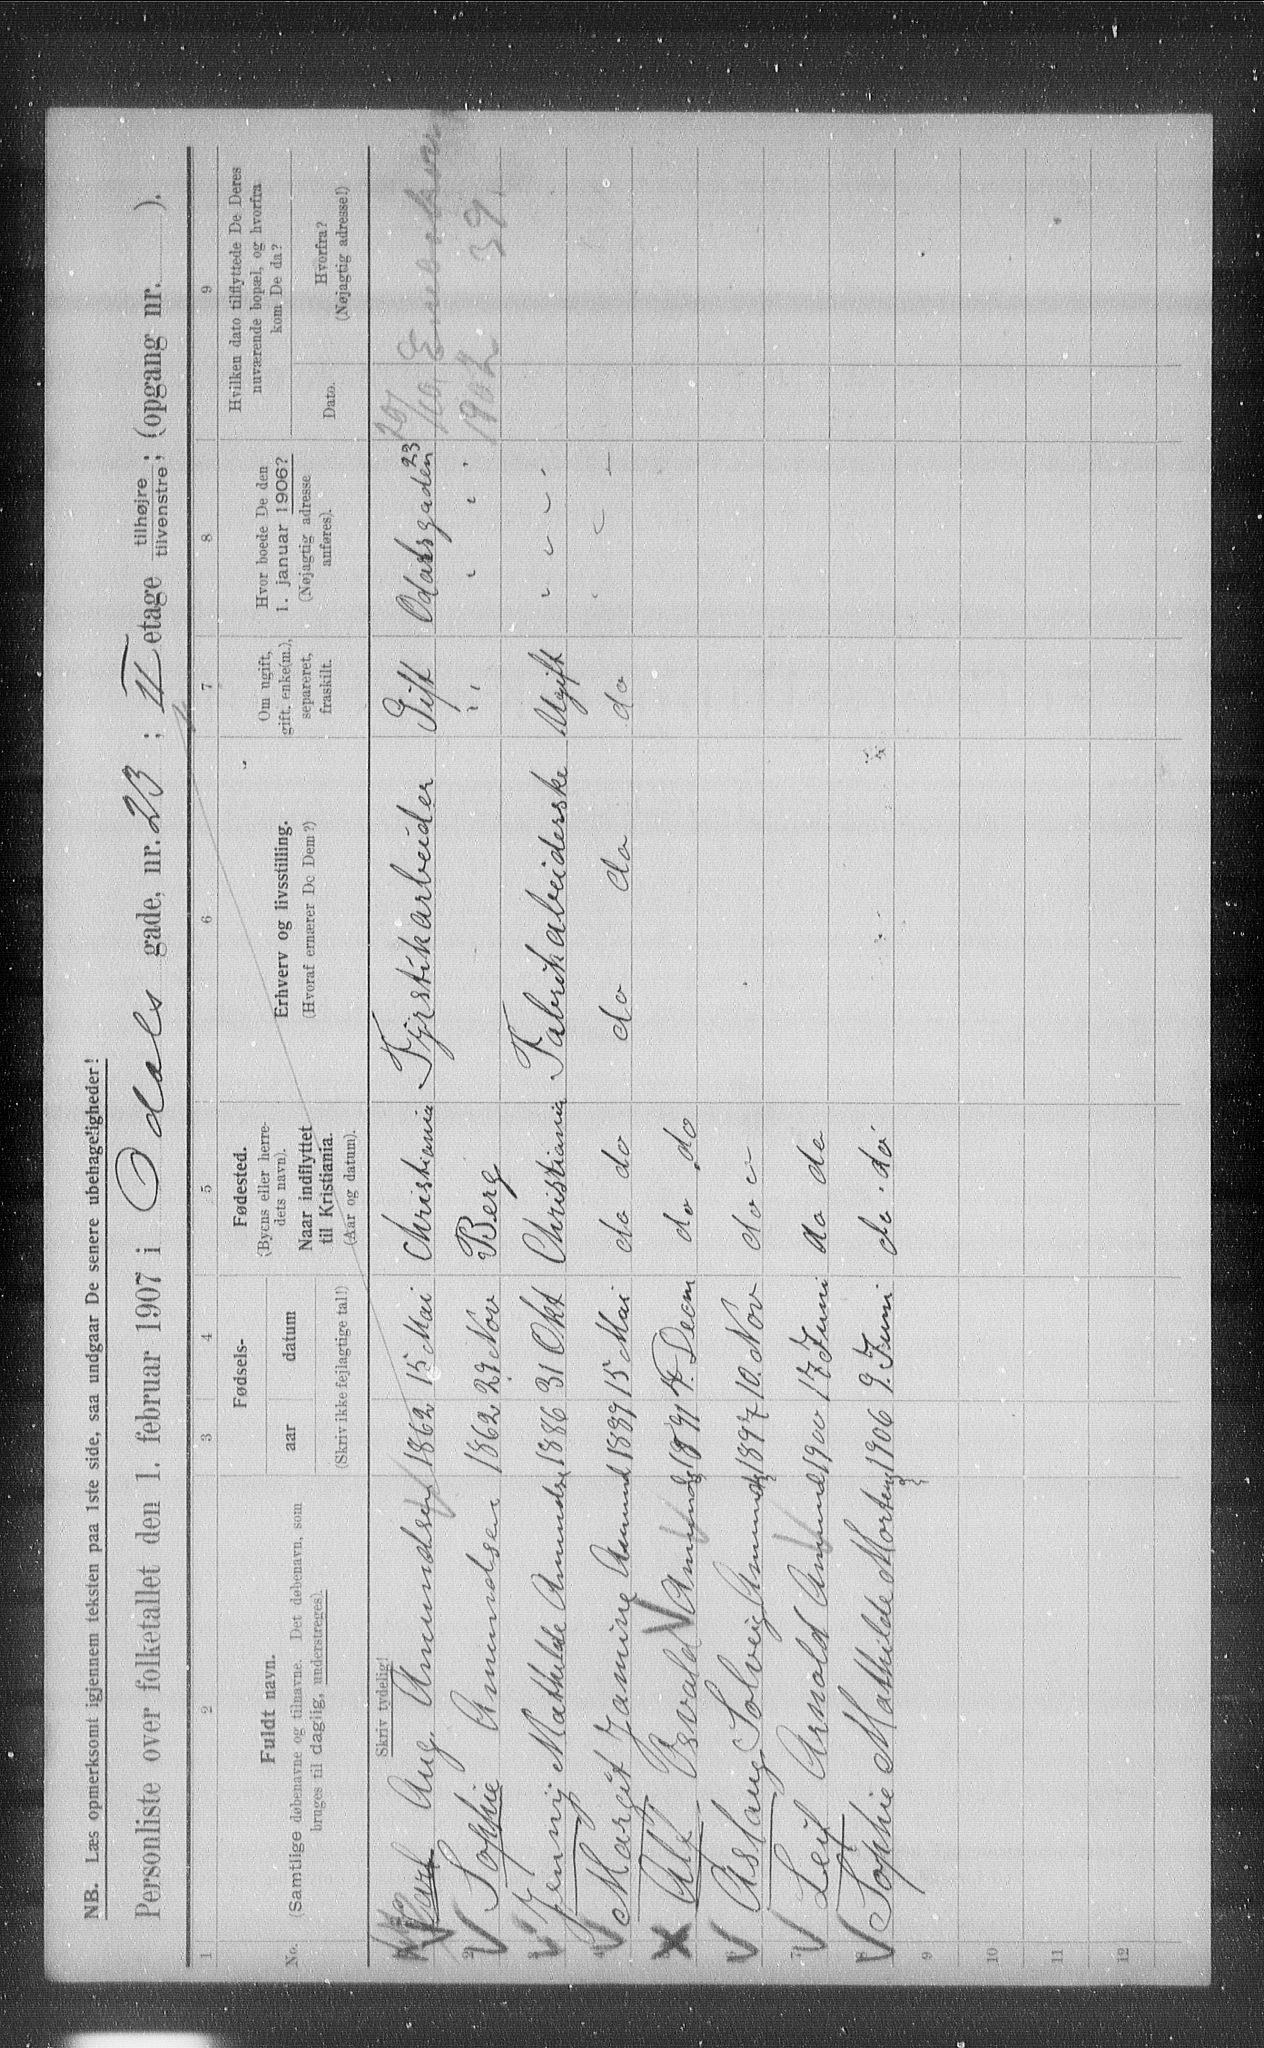 NB. Læs opmerksomt igjennem teksten paa 1ste side, saa undgaar De senere ubehageligheder!
Personliste over folketallet den 1. februar 1907 i Odals gade, nr. 23 ; II etage tilhøjre tilvenstre ; (opgang nr. ).
1 2 3 4 5 6 7 8 9
No.
Fuldt navn.
(Samtlige døbenavne og tilnavne. Det døbenavn, som
bruges til daglig, understreges).
Fødsels-
aar datum
(Skriv ikke fejlagtige tal!)
Fødested.
(Byens eller herre-
dets navn).
Naar indflyttet
til Kristiania.
(Aar og datum).
Erhverv og livsstilling.
(Hvoraf ernærer De Dem?)
Om ugift,
gift. enke(m.),
separeret,
fraskilt.
Hvor boede De den
1. januar 1906?
(Nøjagtig adresse
anføres).
Hvilken dato tilflyttede De Deres
nuværende bopæl, og hvorfra
kom De da?
Dato.
Hvorfra?
(Nøjagtig adresse!)
Skriv tydelig!
Karl Aug Amundsen 1862 15 Mai Christiania Fyrstikarbeider Gift Odalsgaden 23
2 Sophie Amundsen 1862 29 Nov Berg " 1902 39
Jenny Mathilde Amundse 1886 31 Okt Christiania Fabrikabeiderske Ugift
Margit Janine Amund 1889 15 Mai do do do do do
Alf Osvald Amunds 1891 7. Decm do do
Aslaug Solveig Amunds 1897 10. Nov do "
7 Leif Arnold Amund 1900 17 Juni do do
Sophie Mathilde Mortens 1906 9. Juni do do
9
10
11
12